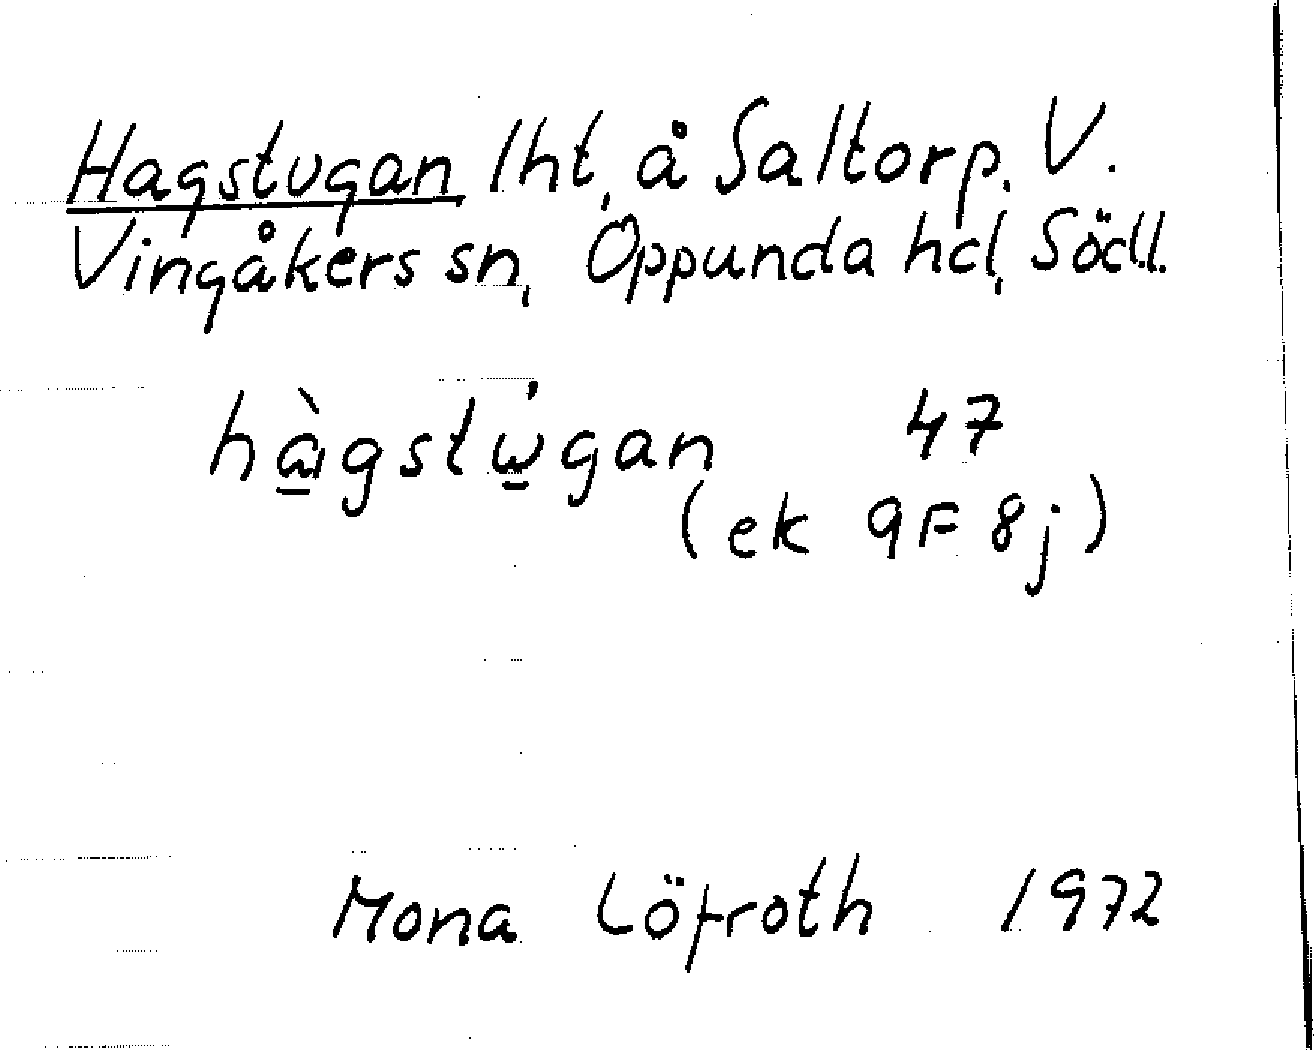 Hagstugan lht, å Saltorp, V.
Vingåkers sn, Oppunda hd, Södl.
hàgstùgan 47
(ek 9F 8j)
Mona Löfroth 1972